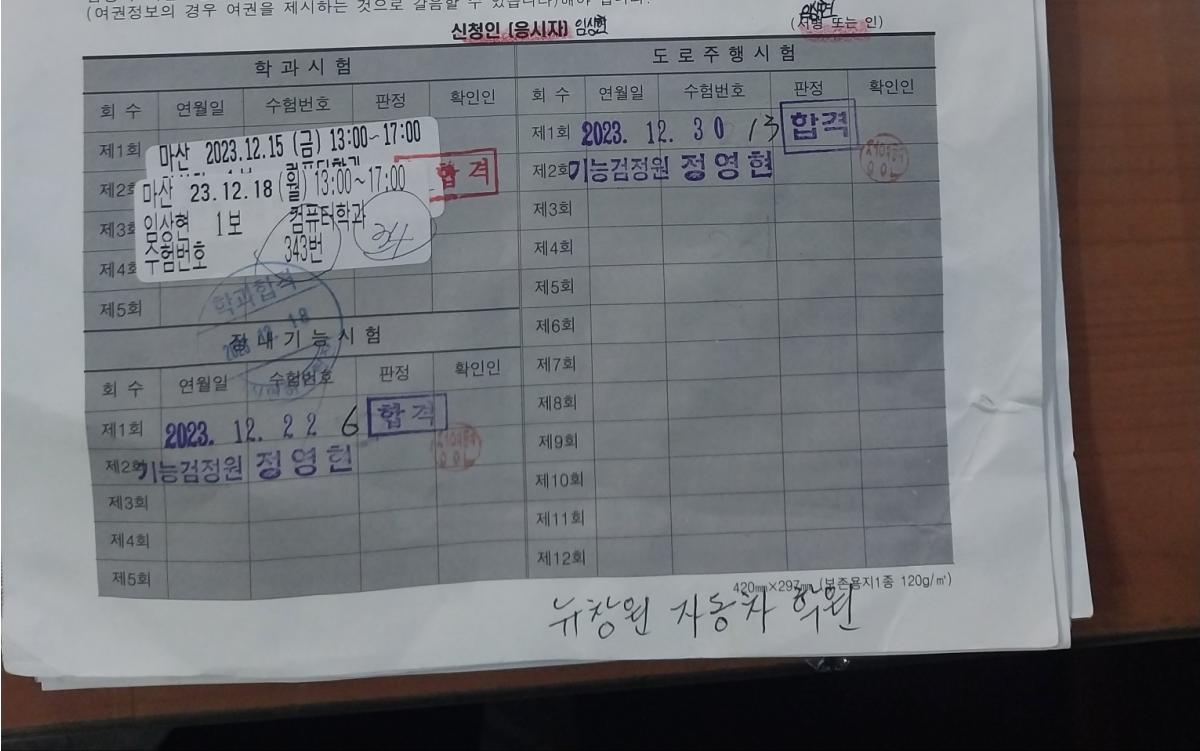 (여권정보의 경우 여권을 제시하는 것으로 갈음할 수 있습니다)해야 합니다.
신청인 (응시자) 임상현
(서명 또는 인)
학 과 시 험
회 수 연월일 수험번호 판정 확인인
제1회
마산 2023.12.15 (금) 13:00~17:00
제2회 합격
마산 23.12.18 (월) 13:00~17:00
제3회 임상현 1보 컴퓨터학과
수험번호 343번
제4회
제5회
학과합격
장 내 기 능 시 험
회 수 연월일 수험번호 판정 확인인
제1회 2023. 12. 22 6 합격
제2회 기능검정원 정영현
제3회
제4회
제5회
도 로 주 행 시 험
회 수 연월일 수험번호 판정 확인인
제1회 2023. 12. 30 13 합격
제2회 기능검정원 정영현
제3회
제4회
제5회
제6회
제7회
제8회
제9회
제10회
제11회
제12회
420㎜×297㎜ (보존용지1종 120g/㎡)
뉴창원 자동차 학원